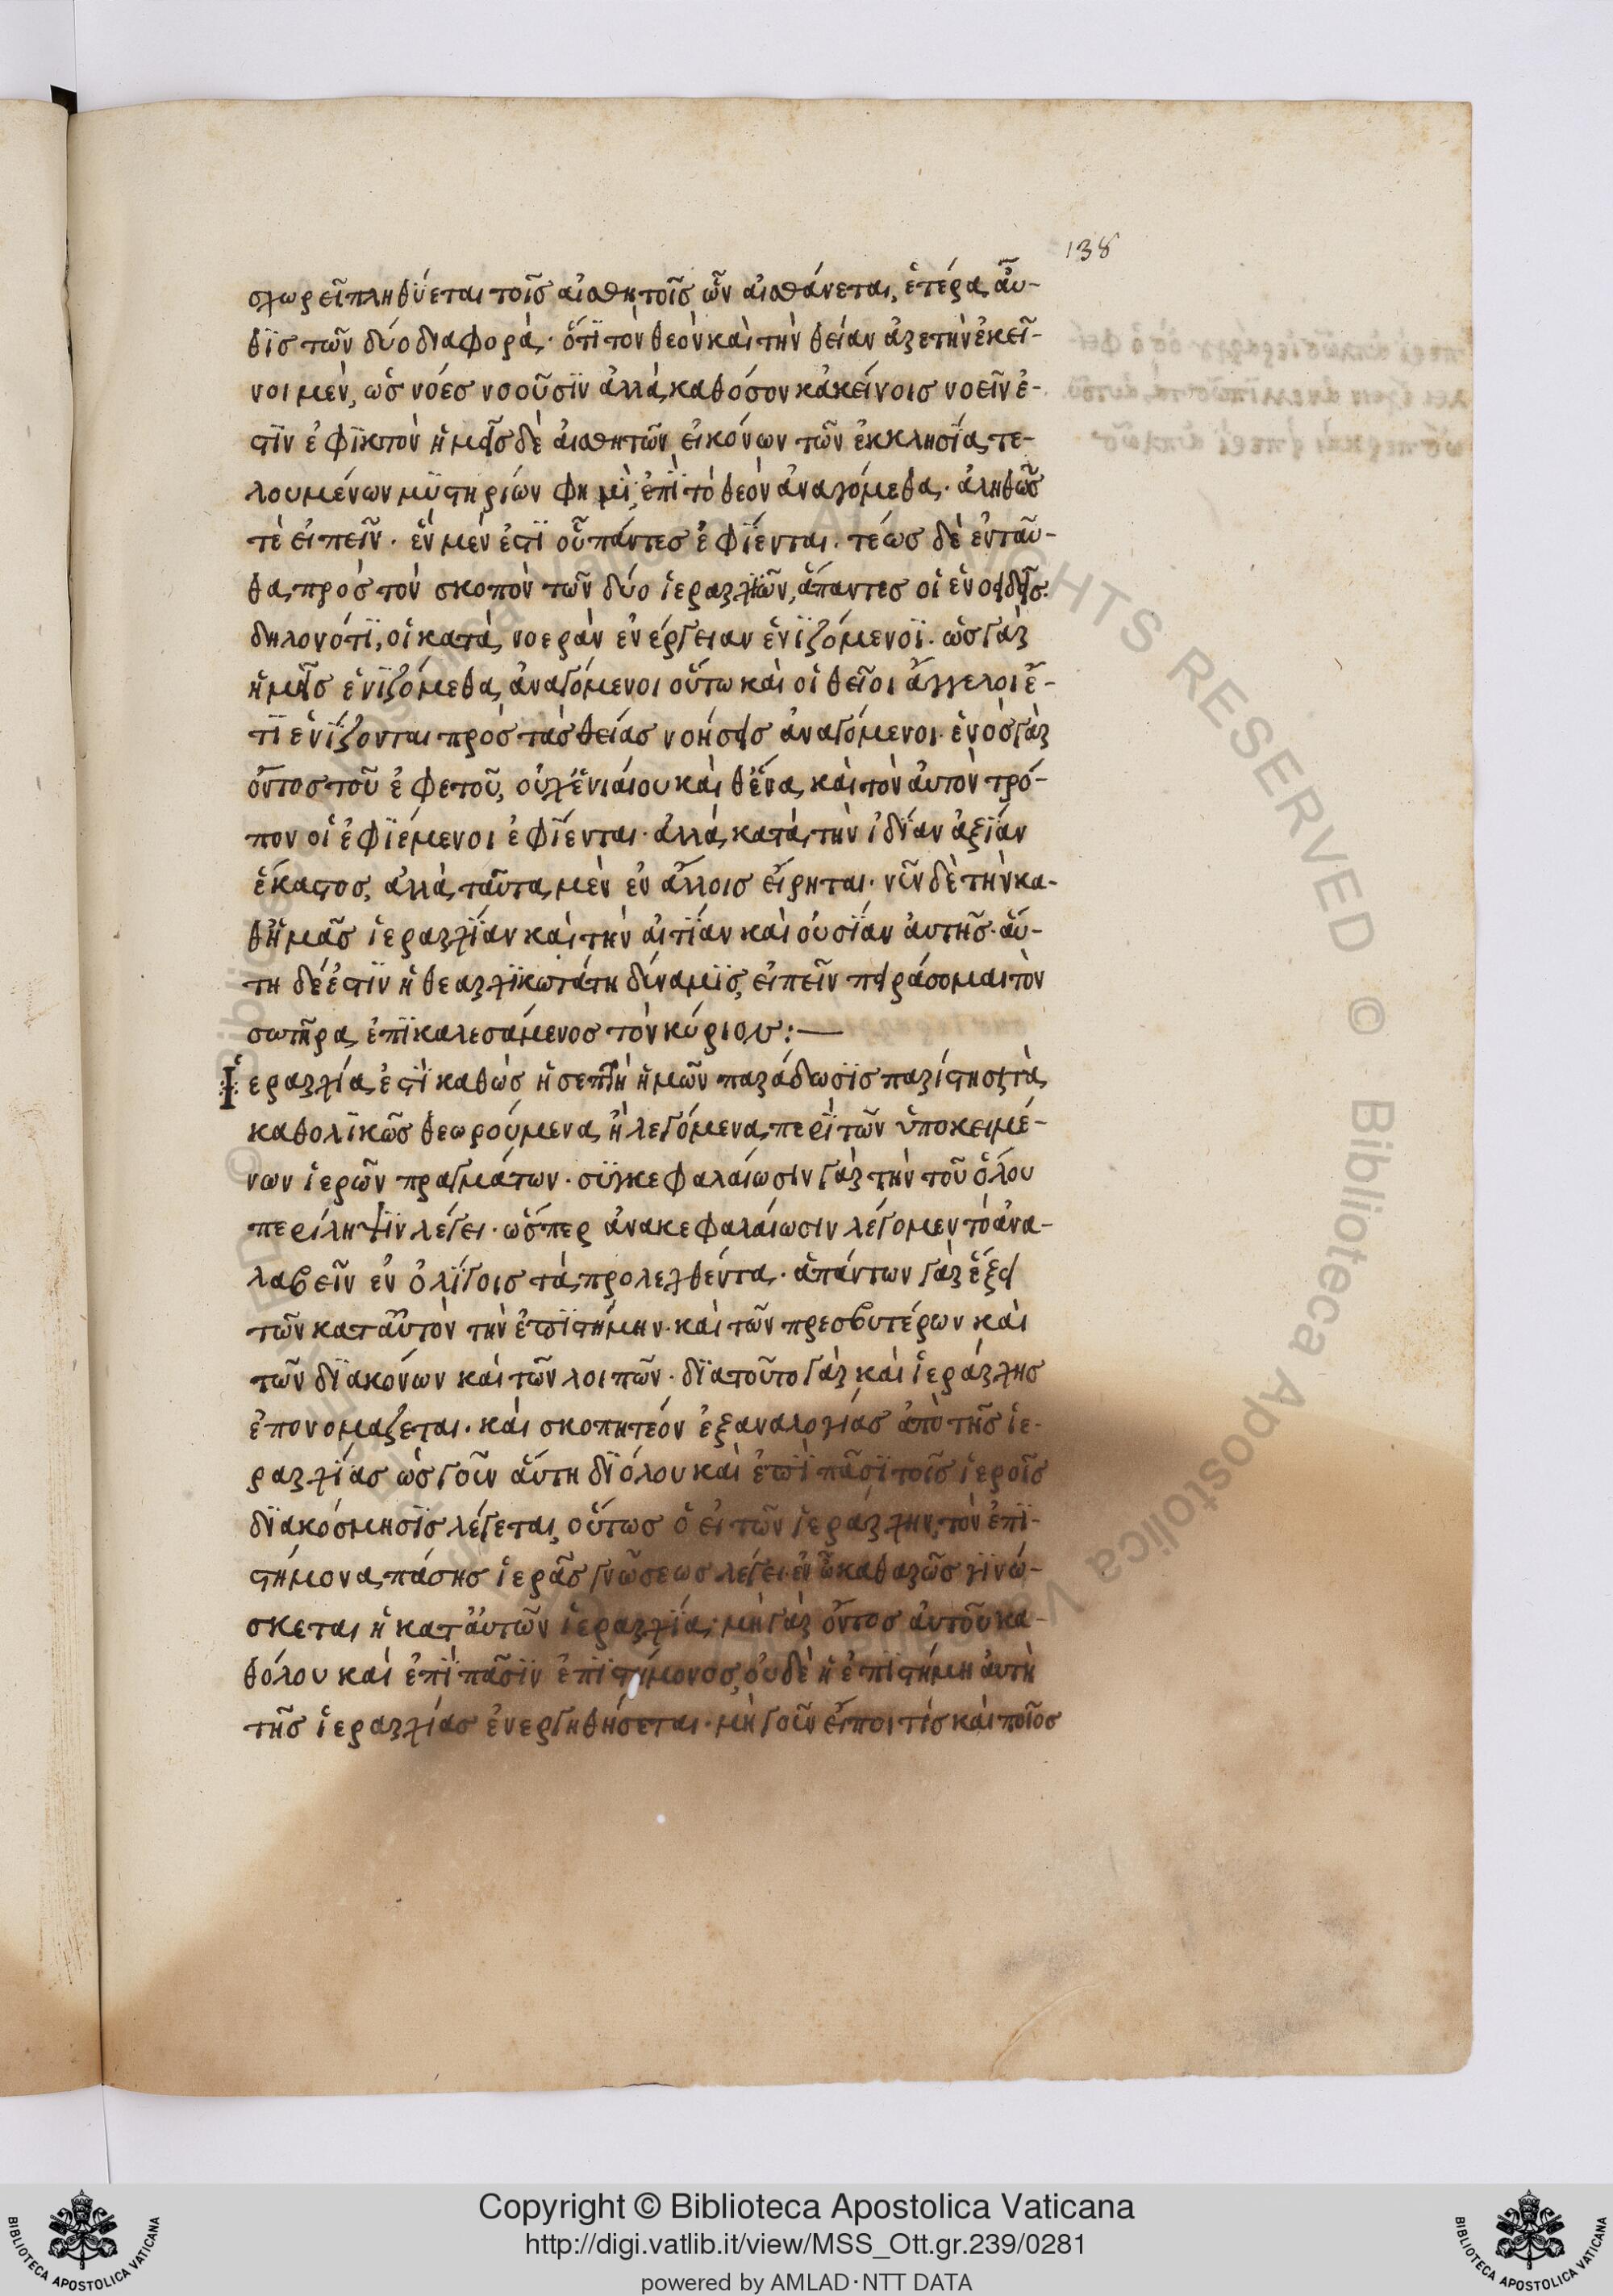 138
σχωρεῖ πληθύεται τοῖς αἰσθητοῖς ὧν αἰσθάνεται, ἑτέρα αὖ-
θις τῶν δύο διαφορά· ὅτι τὸν θεὸν καὶ τὴν θείαν ἀρετὴν ἐκεῖ-
νοι μὲν, ὡς νόες νοοῦσιν ἀλλὰ καθόσον κἀκείνοις νοεῖν ἐ-
στὶν ἐφικτὸν ἡμεῖς δὲ αἰσθητῶν εἰκόνων τῶν ἐκκλησία τε-
λουμένων μυστηρίων φημὶ, ἐπὶ τὸ θεὸν ἀναγόμεθα· ἀληθῶς
τὲ εἰπεῖν· ἓν μὲν ἐστὶ οὗ πάντες ἐφίενται· τέως δὲ ἐνταῦ-
θα, πρὸς τὸν σκοπὸν τῶν δύο ἱεραρχιῶν, ἅπαντες οἱ ἑνοειδεῖς
δηλονότι, οἱ κατὰ νοερὰν ἐνέργειαν ἑνιζόμενοι· ὡς γὰρ
ἡμεῖς ἑνιζόμεθα ἀναγόμενοι οὕτω καὶ οἱ θεῖοι ἄγγελοι ἔ-
τι ἑνίζονται πρὸς τὰς θείας νοήσεις ἀναγόμενοι· ἑνὸς γὰρ
ὄντος τοῦ ἐφετοῦ, οὐχ ἑνιαίου καὶ θἕνα καὶ τὸν αὐτὸν τρό-
πον οἱ ἐφιέμενοι ἐφίενται· ἀλλὰ κατὰ τὴν ἰδίαν ἀξίαν
ἕκαστος, ἀλλὰ ταῦτα μὲν ἐν ἄλλοις εἴρηται· νῦν δὲ τὴν κα-
θ' ἡμᾶς ἱεραρχίαν καὶ τὴν αἰτίαν καὶ οὐσίαν αὐτῆς· αὕ-
τη δέ ἐστὶν ἡ θεαρχικωτάτη δύναμις, εἰπεῖν πειράσομαι τὸν
σωτῆρα ἐπικαλεσάμενος τὸν κύριον:—
Ἱεραρχία ἐστὶ καθὼς ἡ σεπτὴ ἡμῶν παράδωσις παρίστησι τὰ
καθολικῶς θεωρούμενα ἢ λεγόμενα περὶ τῶν ὑποκειμέ-
νων ἱερῶν πραγμάτων· συγκεφαλαίωσιν γὰρ τὴν τοῦ ὅλου
περίληψιν λέγει· ὥσπερ ἀνακεφαλαίωσιν λέγομεν τὸ ἀνα-
λαβεῖν ἐν ὀλίγοις τὰ προλεχθέντα· ἁπάντων γὰρ ἕξει
τῶν κατ' αὐτὸν τὴν ἐπιστήμην· καὶ τῶν πρεσβυτέρων καὶ
τῶν διακόνων καὶ τῶν λοιπῶν· διατοῦτο γὰρ καὶ ἱεράρχης
ἐπονομάζεται· καὶ σκοπητέον ἐξαναλογίας ἀπὸ τῆς ἱε-
ραρχίας ὡς γοῦν αὕτη δι' ὅλου καὶ ἐπὶ πᾶσι τοῖς ἱεροῖς
διακόσμησις λέγεται, οὕτως ὁ εἰπὼν ἱεράρχην, τὸν ἐπι-
στήμονα πάσης ἱερᾶς γνώσεως λέγει· ἐν ᾧ καθαρῶς γινώ-
σκεται ἡ κατ' αὐτῶν ἱεραρχία· μὴ γὰρ ὄντος αὐτοῦ κα-
θόλου καὶ ἐπὶ πᾶσιν ἐπιστήμονος, οὐδὲ ἡ ἐπιστήμη αὐτὴ
τῆς ἱεραρχίας ἐνεργηθήσεται· μὴ γοῦν εἴποι τίς καὶ ποῖος
Copyright © Biblioteca Apostolica Vaticana
http://digi.vatlib.it/view/MSS_Ott.gr.239/0281
powered by AMLAD·NTT DATA
BIBLIOTECA APOSTOLICA VATICANA
BIBLIOTECA APOSTOLICA VATICANA